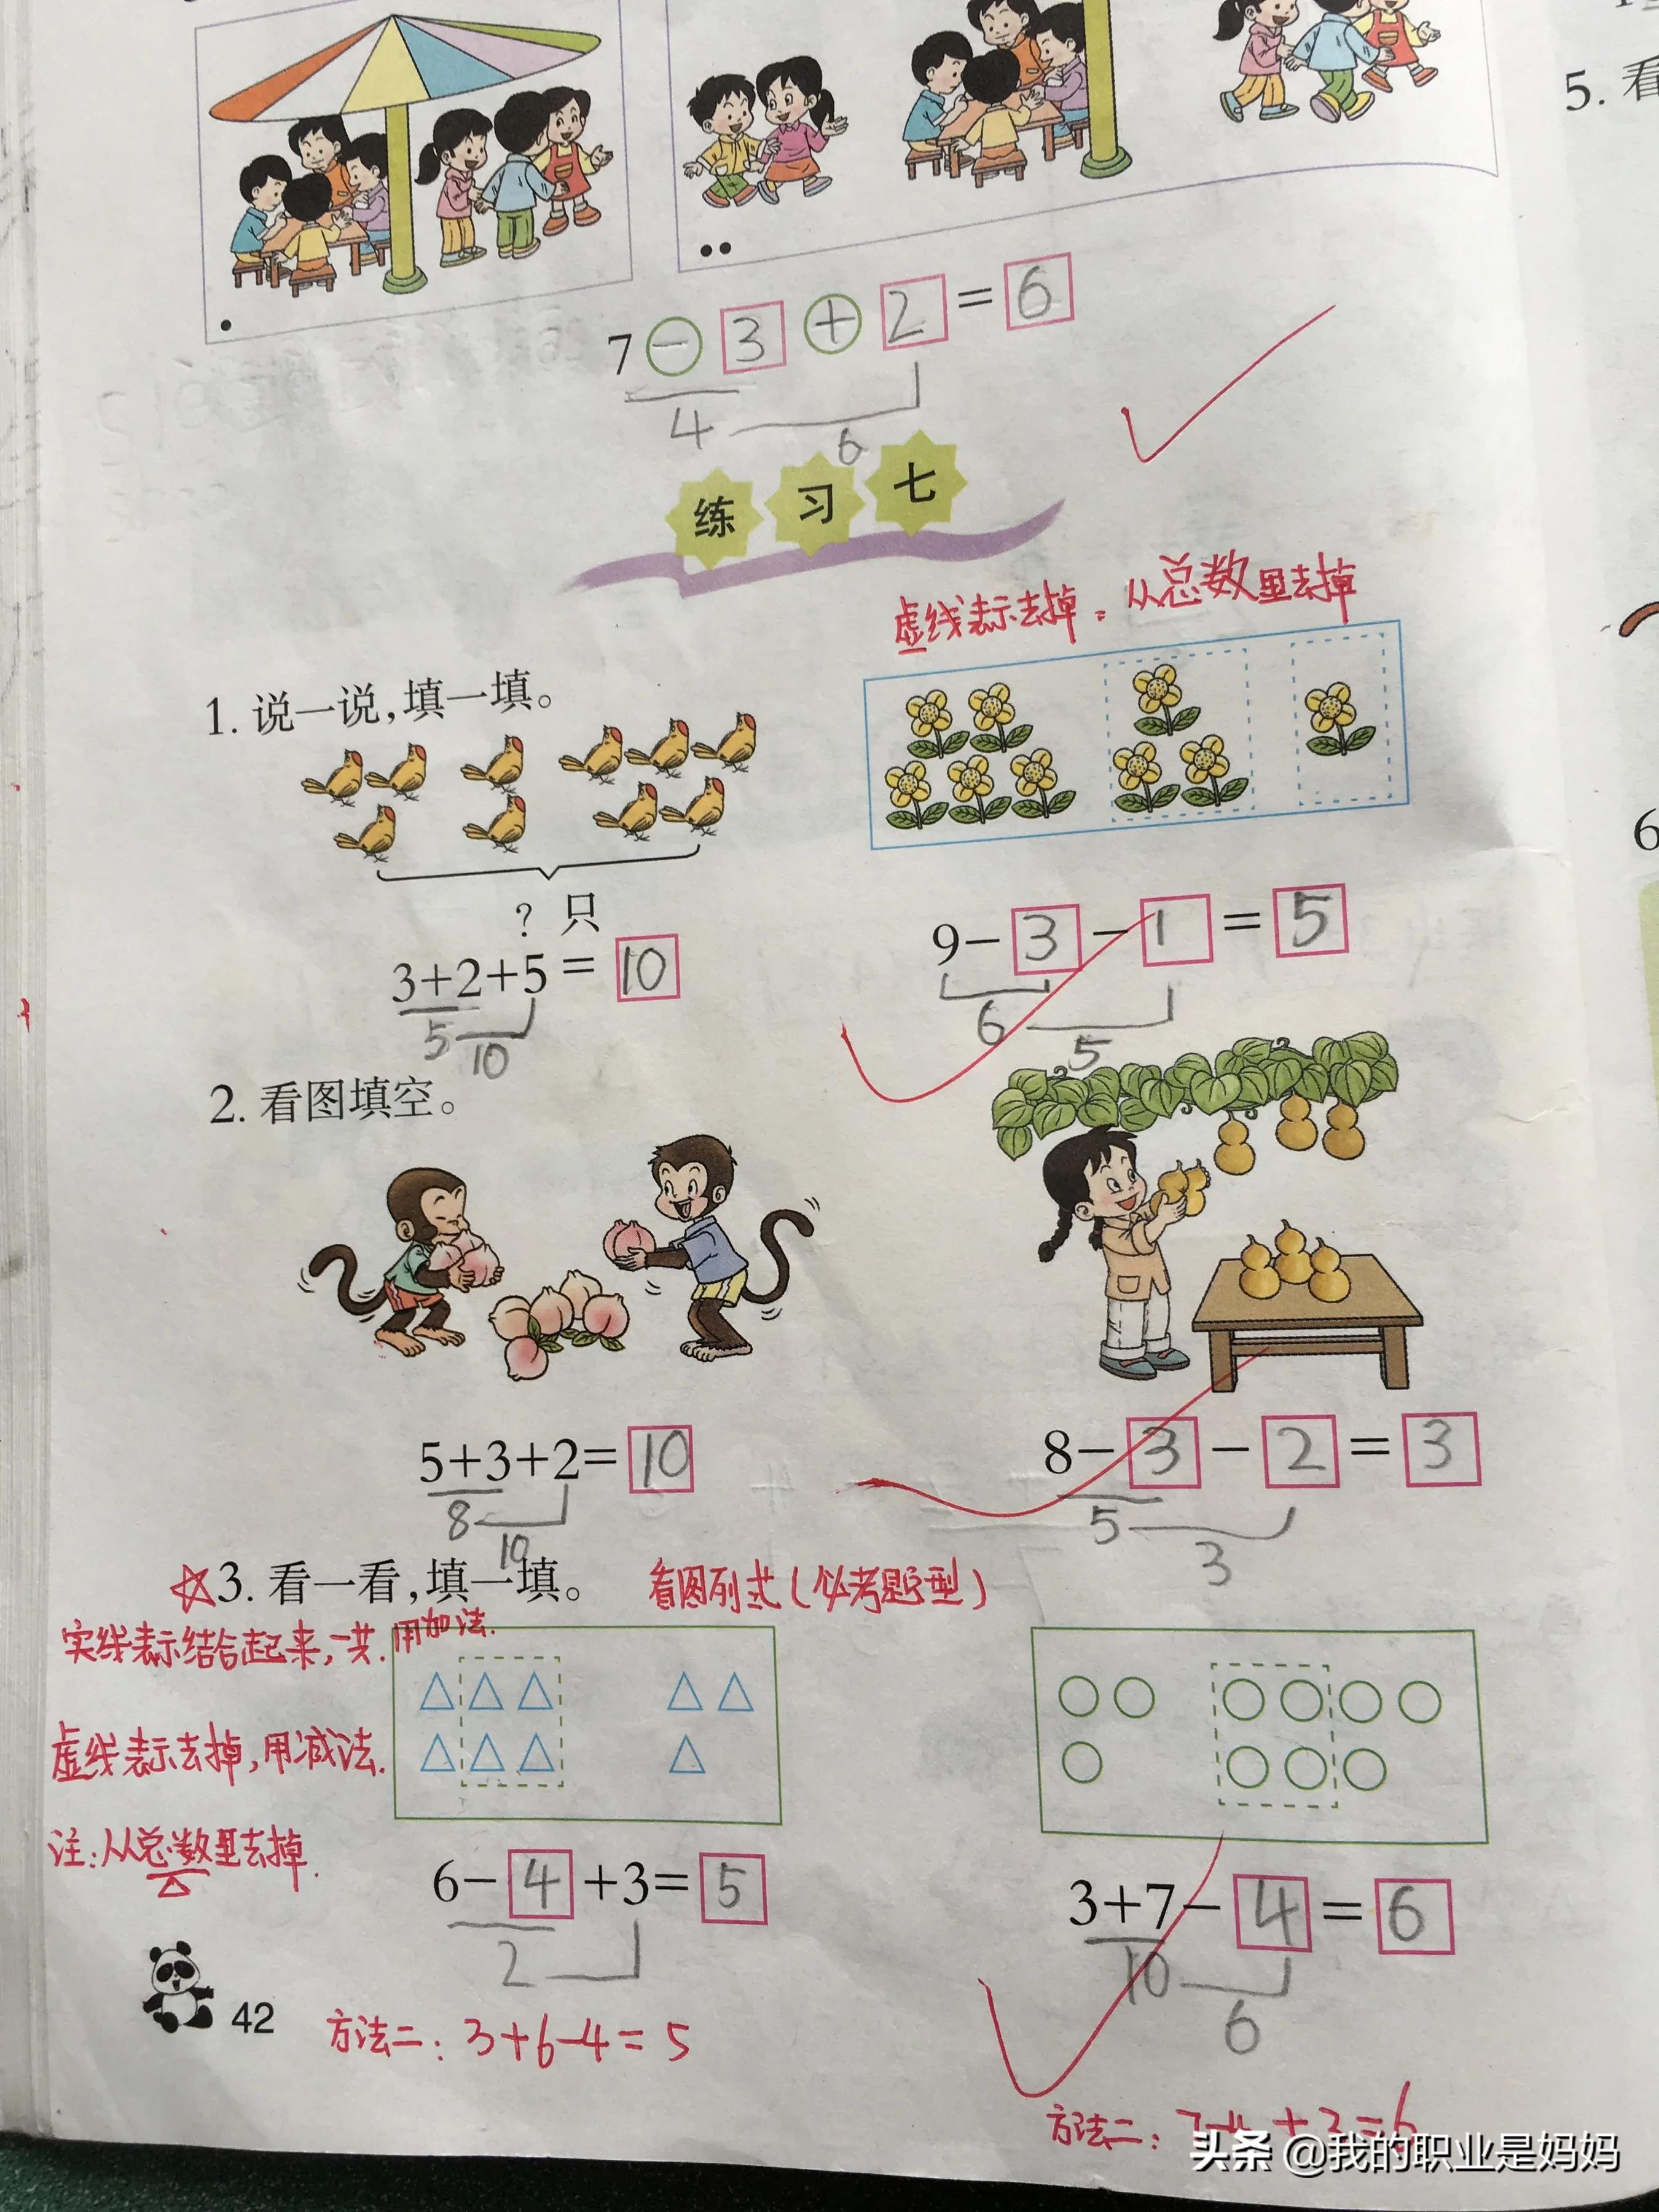 5. 看
7 − 3 + 2 = 6
4
6
练习七
虚线表示去掉。从总数里去掉
1. 说一说,填一填。
? 只
3+2+5 = 10
5
10
9−3−1=5
6
5
2. 看图填空。
5+3+2=10
8
10
8−3−2=3
5
3
☆3. 看一看,填一填。 看图列式(必考题型)
实线表示结合起来,一共.用加法.
虚线表示去掉,用减法.
注:从总数里去掉.
6−4+3=5
2
3+7−4=6
10
6
42
方法二: 3+6−4=5
方法二: 7−4+3=6
头条 @我的职业是妈妈
6